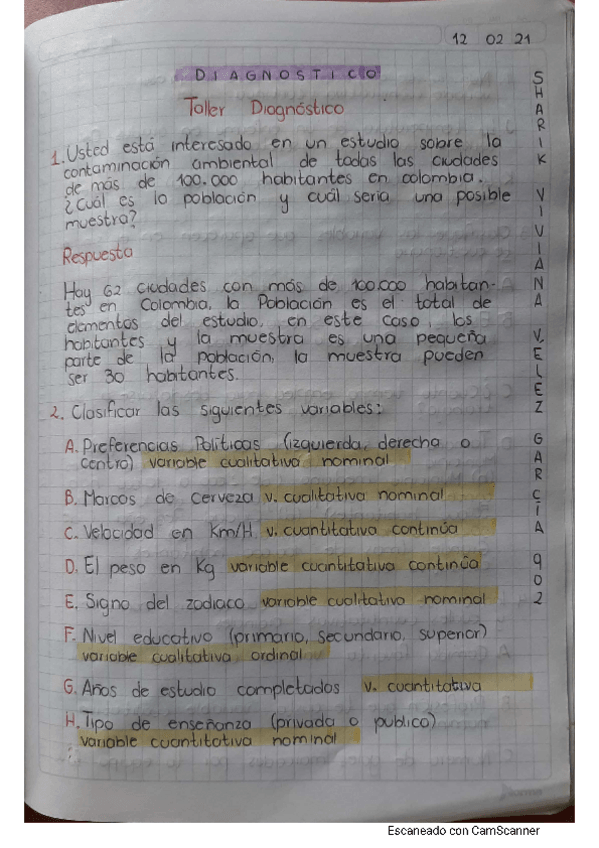 12 02 21
DIAGNOSTICO
Taller Diagnóstico
1. Usted está interesado en un estudio sobre la
contaminación ambiental de todas las ciudades
de más de 100.000 habitantes en colombia.
¿Cuál es la población y cuál sería una posible
muestra?
Respuesta
Hay 62 ciudades con más de 100.000 habitan-
tes en Colombia, la Población es el total de
elementos del estudio, en este caso, los
habitantes y la muestra es una pequeña
parte de la población, la muestra pueden
ser 30 habitantes.
2. Clasificar las siguientes variables:
A. Preferencias Políticas (izquierda, derecha o
centro) variable cualitativa nominal
B. Marcas de cerveza v. cualitativa nominal
C. Velocidad en Km/H v. cuantitativa continúa
D. El peso en Kg variable cuantitativa continúa
E. Signo del zodiaco variable cualitativa nominal
F. Nivel educativo (primaria, secundaria, superior)
variable cualitativa ordinal
G. Años de estudio completados v. cuantitativa
H. Tipo de enseñanza (privada o publica)
variable cuantitativa nominal
SHARIK VIVIANA VELEZ GARCÍA 902
Escaneado con CamScanner